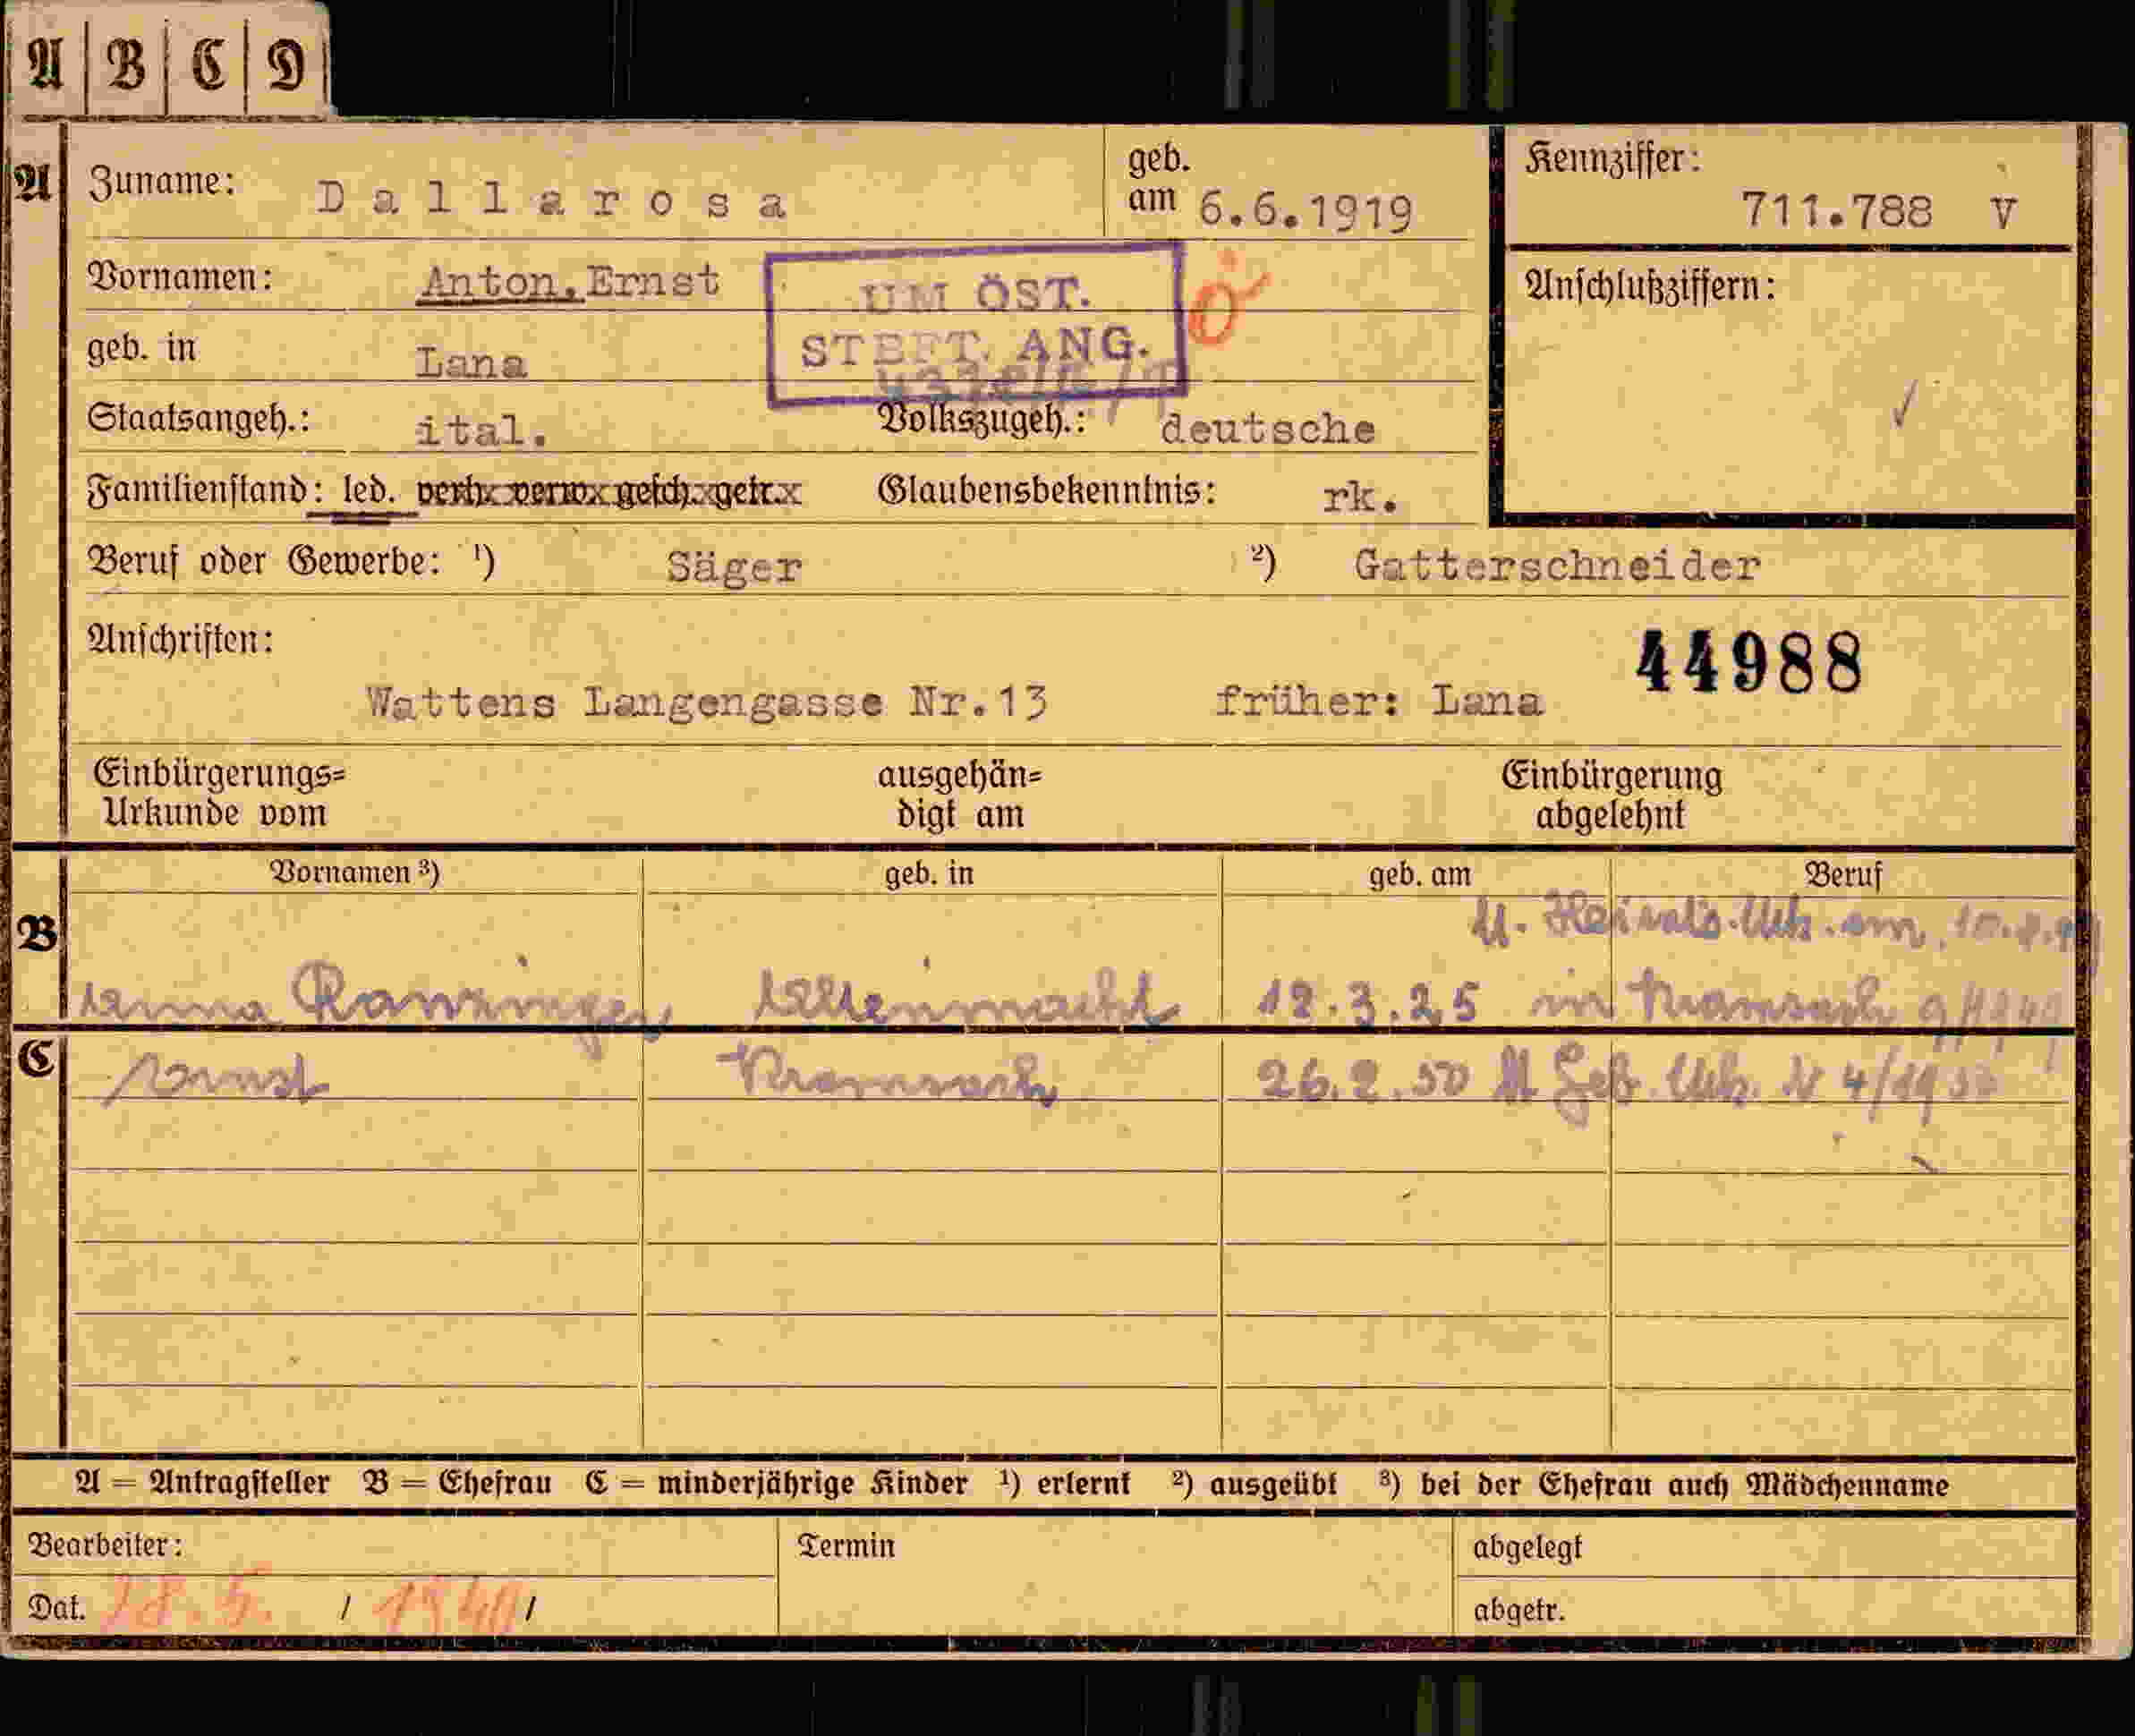 A B C D
A Zuname: Dallarosa geb. am 6.6.1919 Kennziffer: 711.788 V
Vornamen: Anton,Ernst
UM ÖST.
STBFT. ANG.
Ö
Anschlußziffern:
geb. in Lana
Staatsangeh.: ital. Volkszugeh.: deutsche
Familienstand: led. verh. verw. gesch. getr. Glaubensbekenntnis: rk.
Beruf oder Gewerbe: ¹) Säger ²) Gatterschneider
Anschriften: 44988
Wattens Langengasse Nr.13 früher: Lana
Einbürgerungs=Urkunde vom ausgehän=digt am Einbürgerung abgelehnt
Vornamen ³) geb. in geb. am Beruf
B
12.3.25 in Kramsach
C Ernst Kramsach 26.2.50 Geb. Urk. N 4/1950
A = Antragsteller B = Ehefrau C = minderjährige Kinder ¹) erlernt ²) ausgeübt ³) bei der Ehefrau auch Mädchenname
Bearbeiter: Termin abgelegt
Dat. 28.5. / 1940 / abgetr.